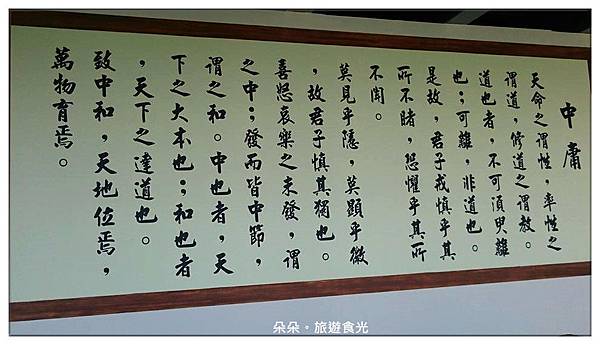 中庸
天命之謂性，率性之
謂道，修道之謂教。
道也者，不可須臾離
也；可離，非道也。
是故，君子戒慎乎其
所不睹，恐懼乎其所
不聞。
莫見乎隱，莫顯乎微
，故君子慎其獨也。
喜怒哀樂之未發，謂
之中；發而皆中節，
謂之和。中也者，天
下之大本也；和也者
，天下之達道也。
致中和，天地位焉，
萬物育焉。
朵朵。旅遊食光